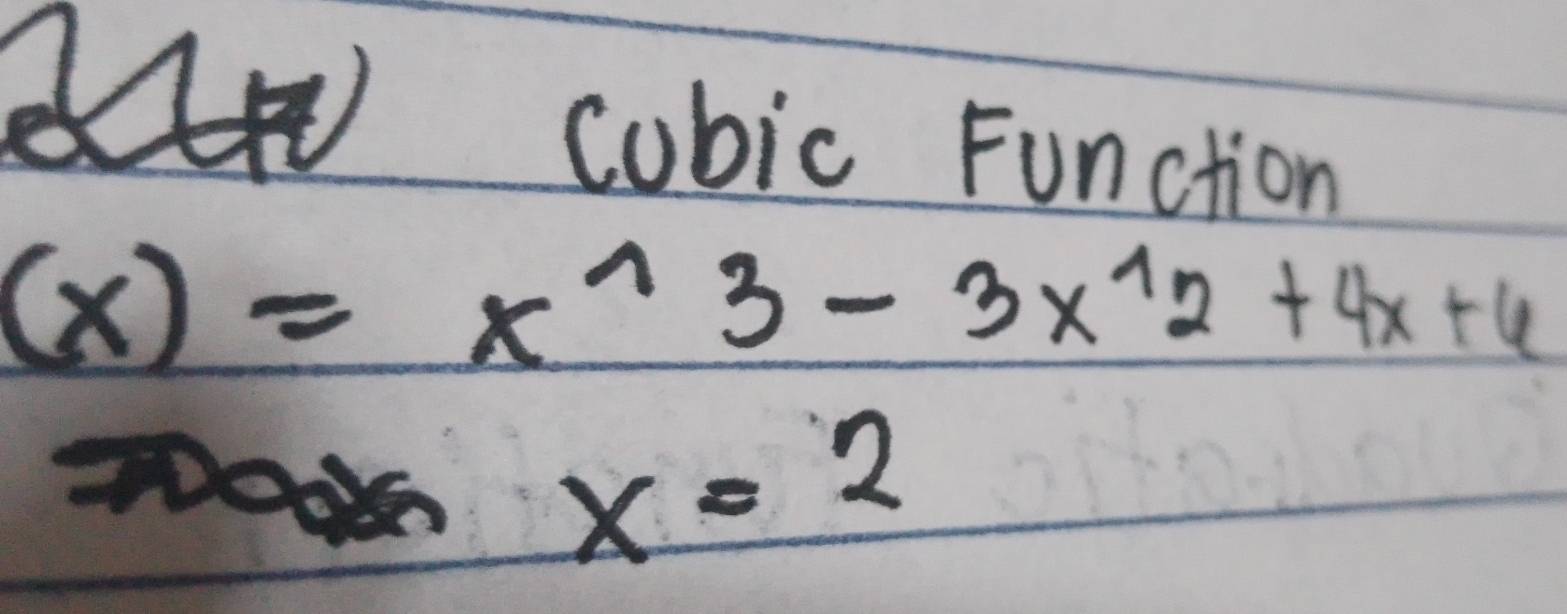 Cubic Function
(x) = x^3 - 3x^2 + 4x + 4
x = 2